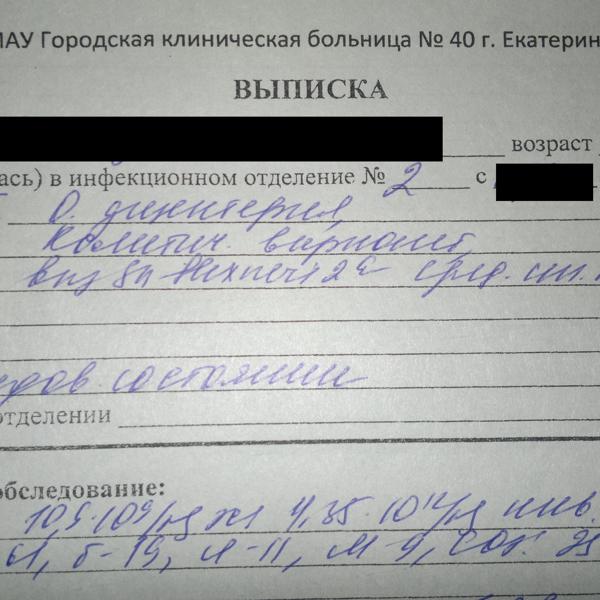 МАУ Городская клиническая больница № 40 г. Екатерин
ВЫПИСКА
возраст
ась) в инфекционном отделение № 2 с
О. дизентерия,
Колитич. вариант,
вызв Sh Flexneri 2a сред. ст.
состоянии
отделении
обследование:
10,5·10⁹/л 4,35·10¹²/л
б-19, л-11, м-9,